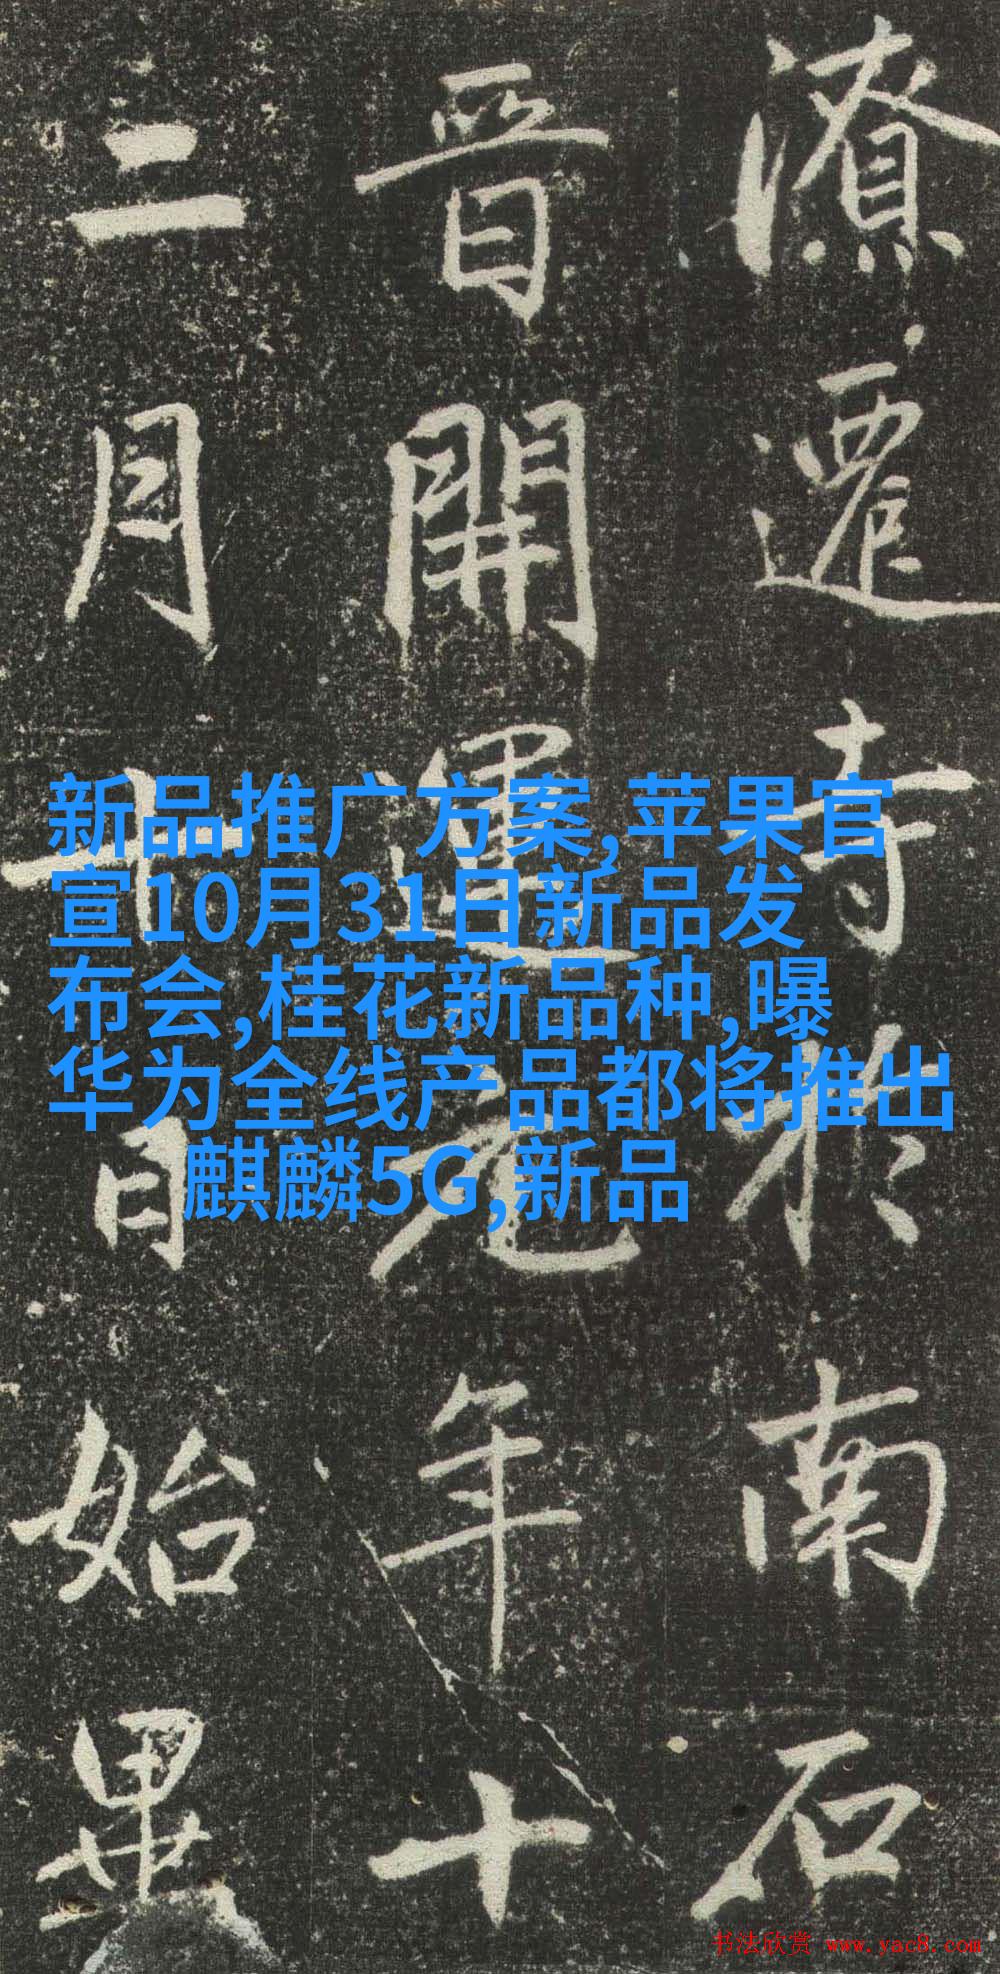 潦遷寺於南石
晉開運元年十
二月十日始畢
新品推广方案,苹果官
宣10月31日新品发
布会,桂花新品种,曝
华为全线产品都将推出
麒麟5G,新品
书法欣赏 www.yac8.com